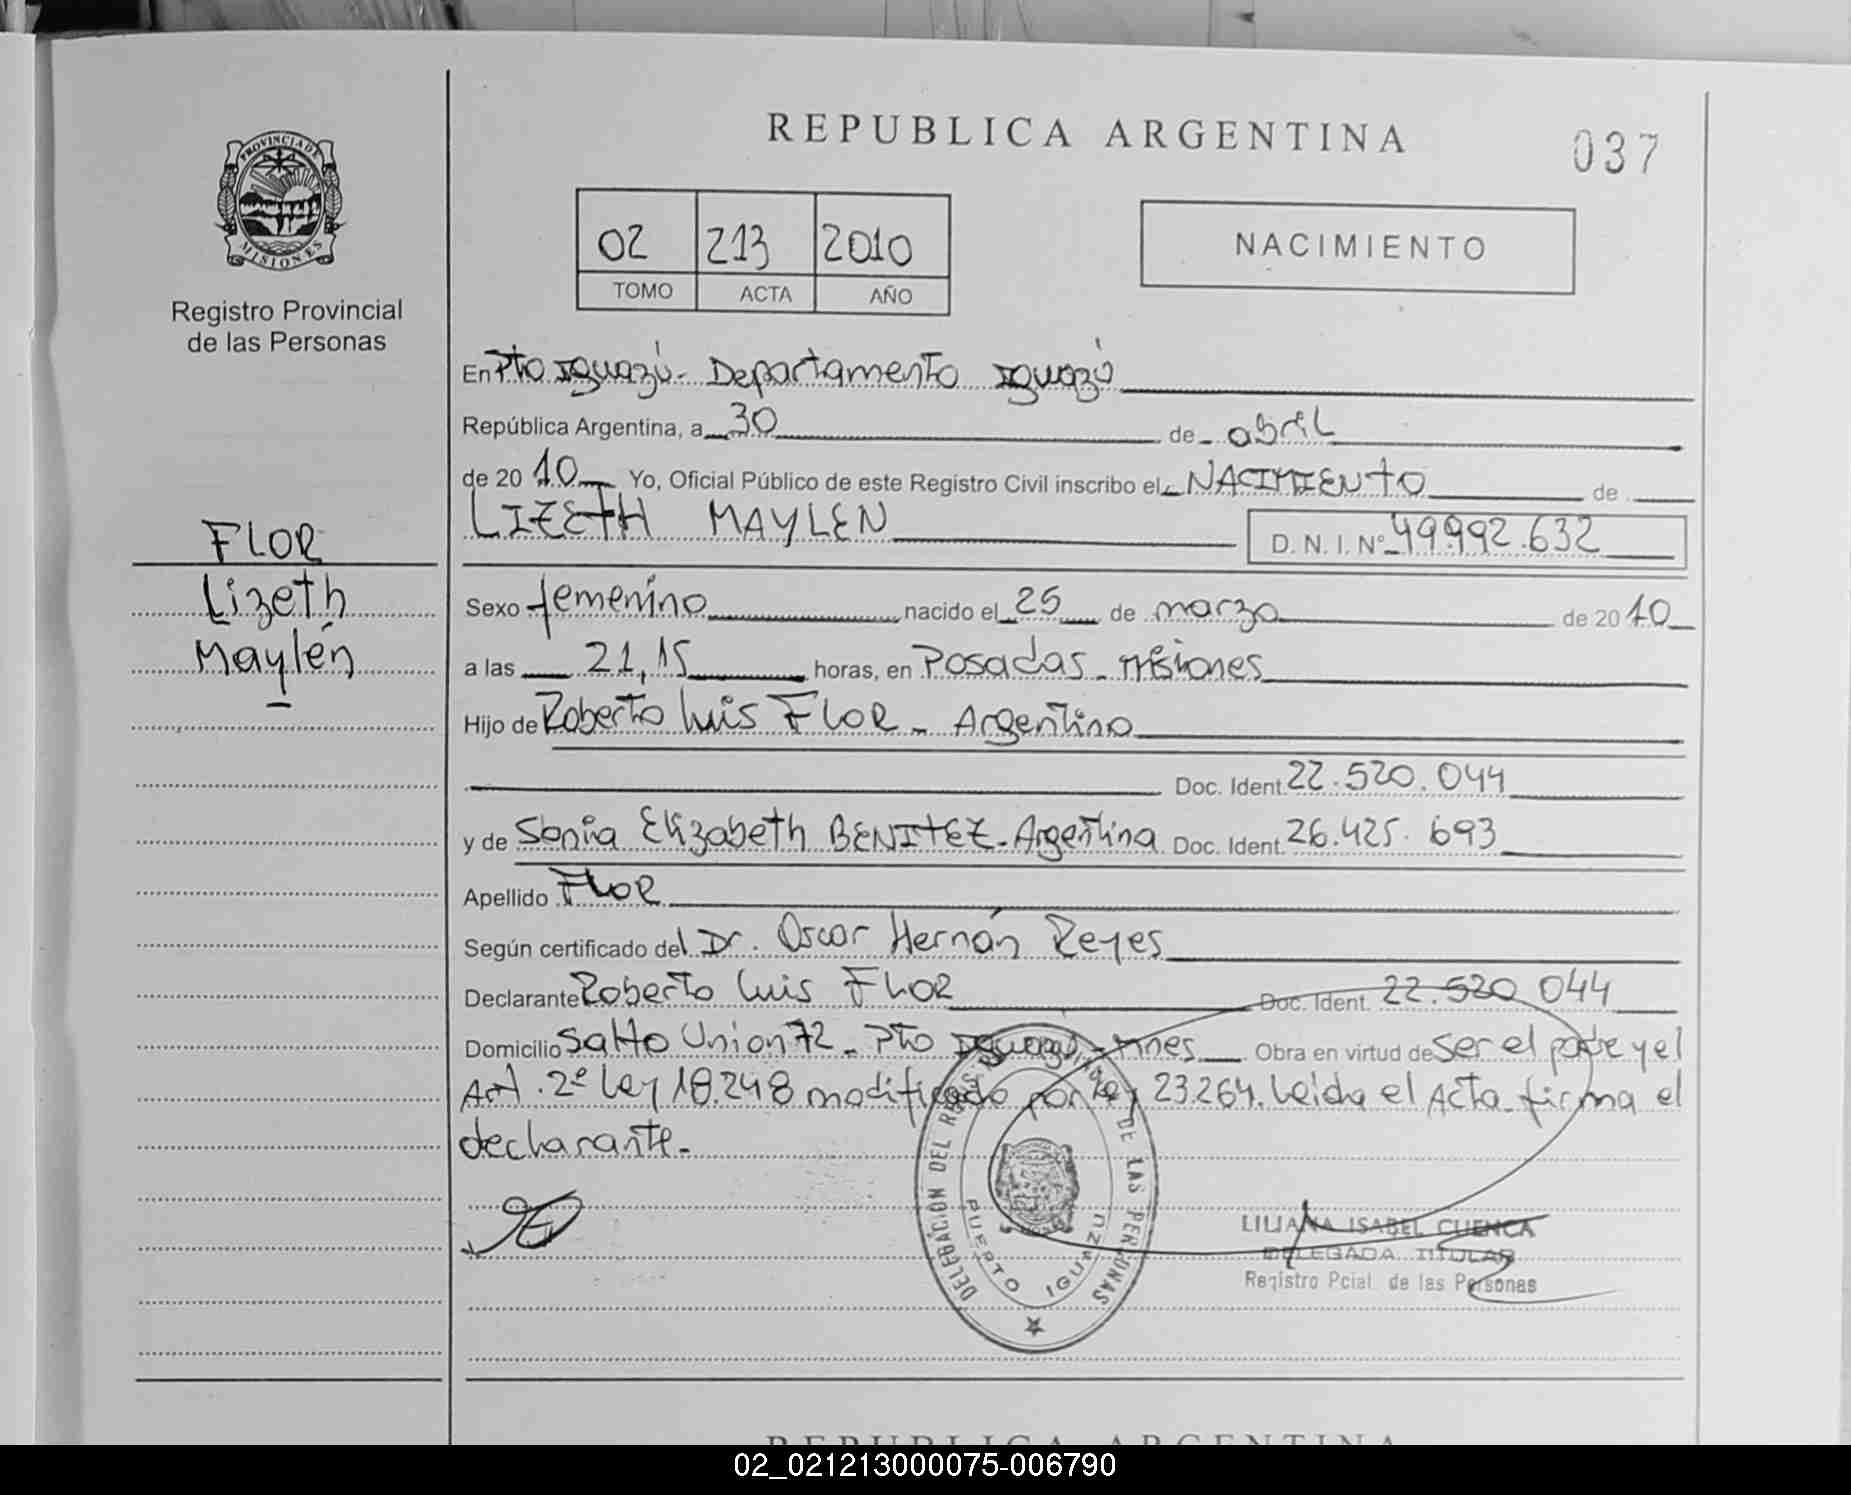 REPUBLICA ARGENTINA
037
PROVINCIA DE MISIONES
Registro Provincial
de las Personas
02 213 2010
TOMO ACTA AÑO
NACIMIENTO
FLOR
Lizeth
Maylén
En Pto Iguazú - Departamento Iguazú
República Argentina, a 30 de abril
de 20 10 Yo, Oficial Público de este Registro Civil inscribo el NACIMIENTO de
LIZETH MAYLEN D. N. I. Nº 49.992.632
Sexo femenino nacido el 25 de marzo de 20 10
a las 21,15 horas, en Posadas - Misiones
Hijo de Roberto Luis FLOR - Argentino
Doc. Ident. 22.520.044
y de Sonia Elizabeth BENITEZ - Argentina Doc. Ident. 26.425.693
Apellido FLOR
Según certificado del Dr. Oscar Hernán Reyes
Declarante Roberto Luis FLOR Doc. Ident. 22.520.044
Domicilio Salto Union 72 - Pto Iguazú - Mnes Obra en virtud de ser el padre y el
Art. 2º Ley 18.248 modificado por Ley 23.264. Leída el Acta firma el
declarante.-
DELEGACIÓN DEL REGISTRO DE LAS PERSONAS
PUERTO IGUAZU
LILIANA ISABEL CUENCA
DELEGADA TITULAR
Registro Pcial. de las Personas
REPUBLICA ARGENTINA
02_021213000075-006790